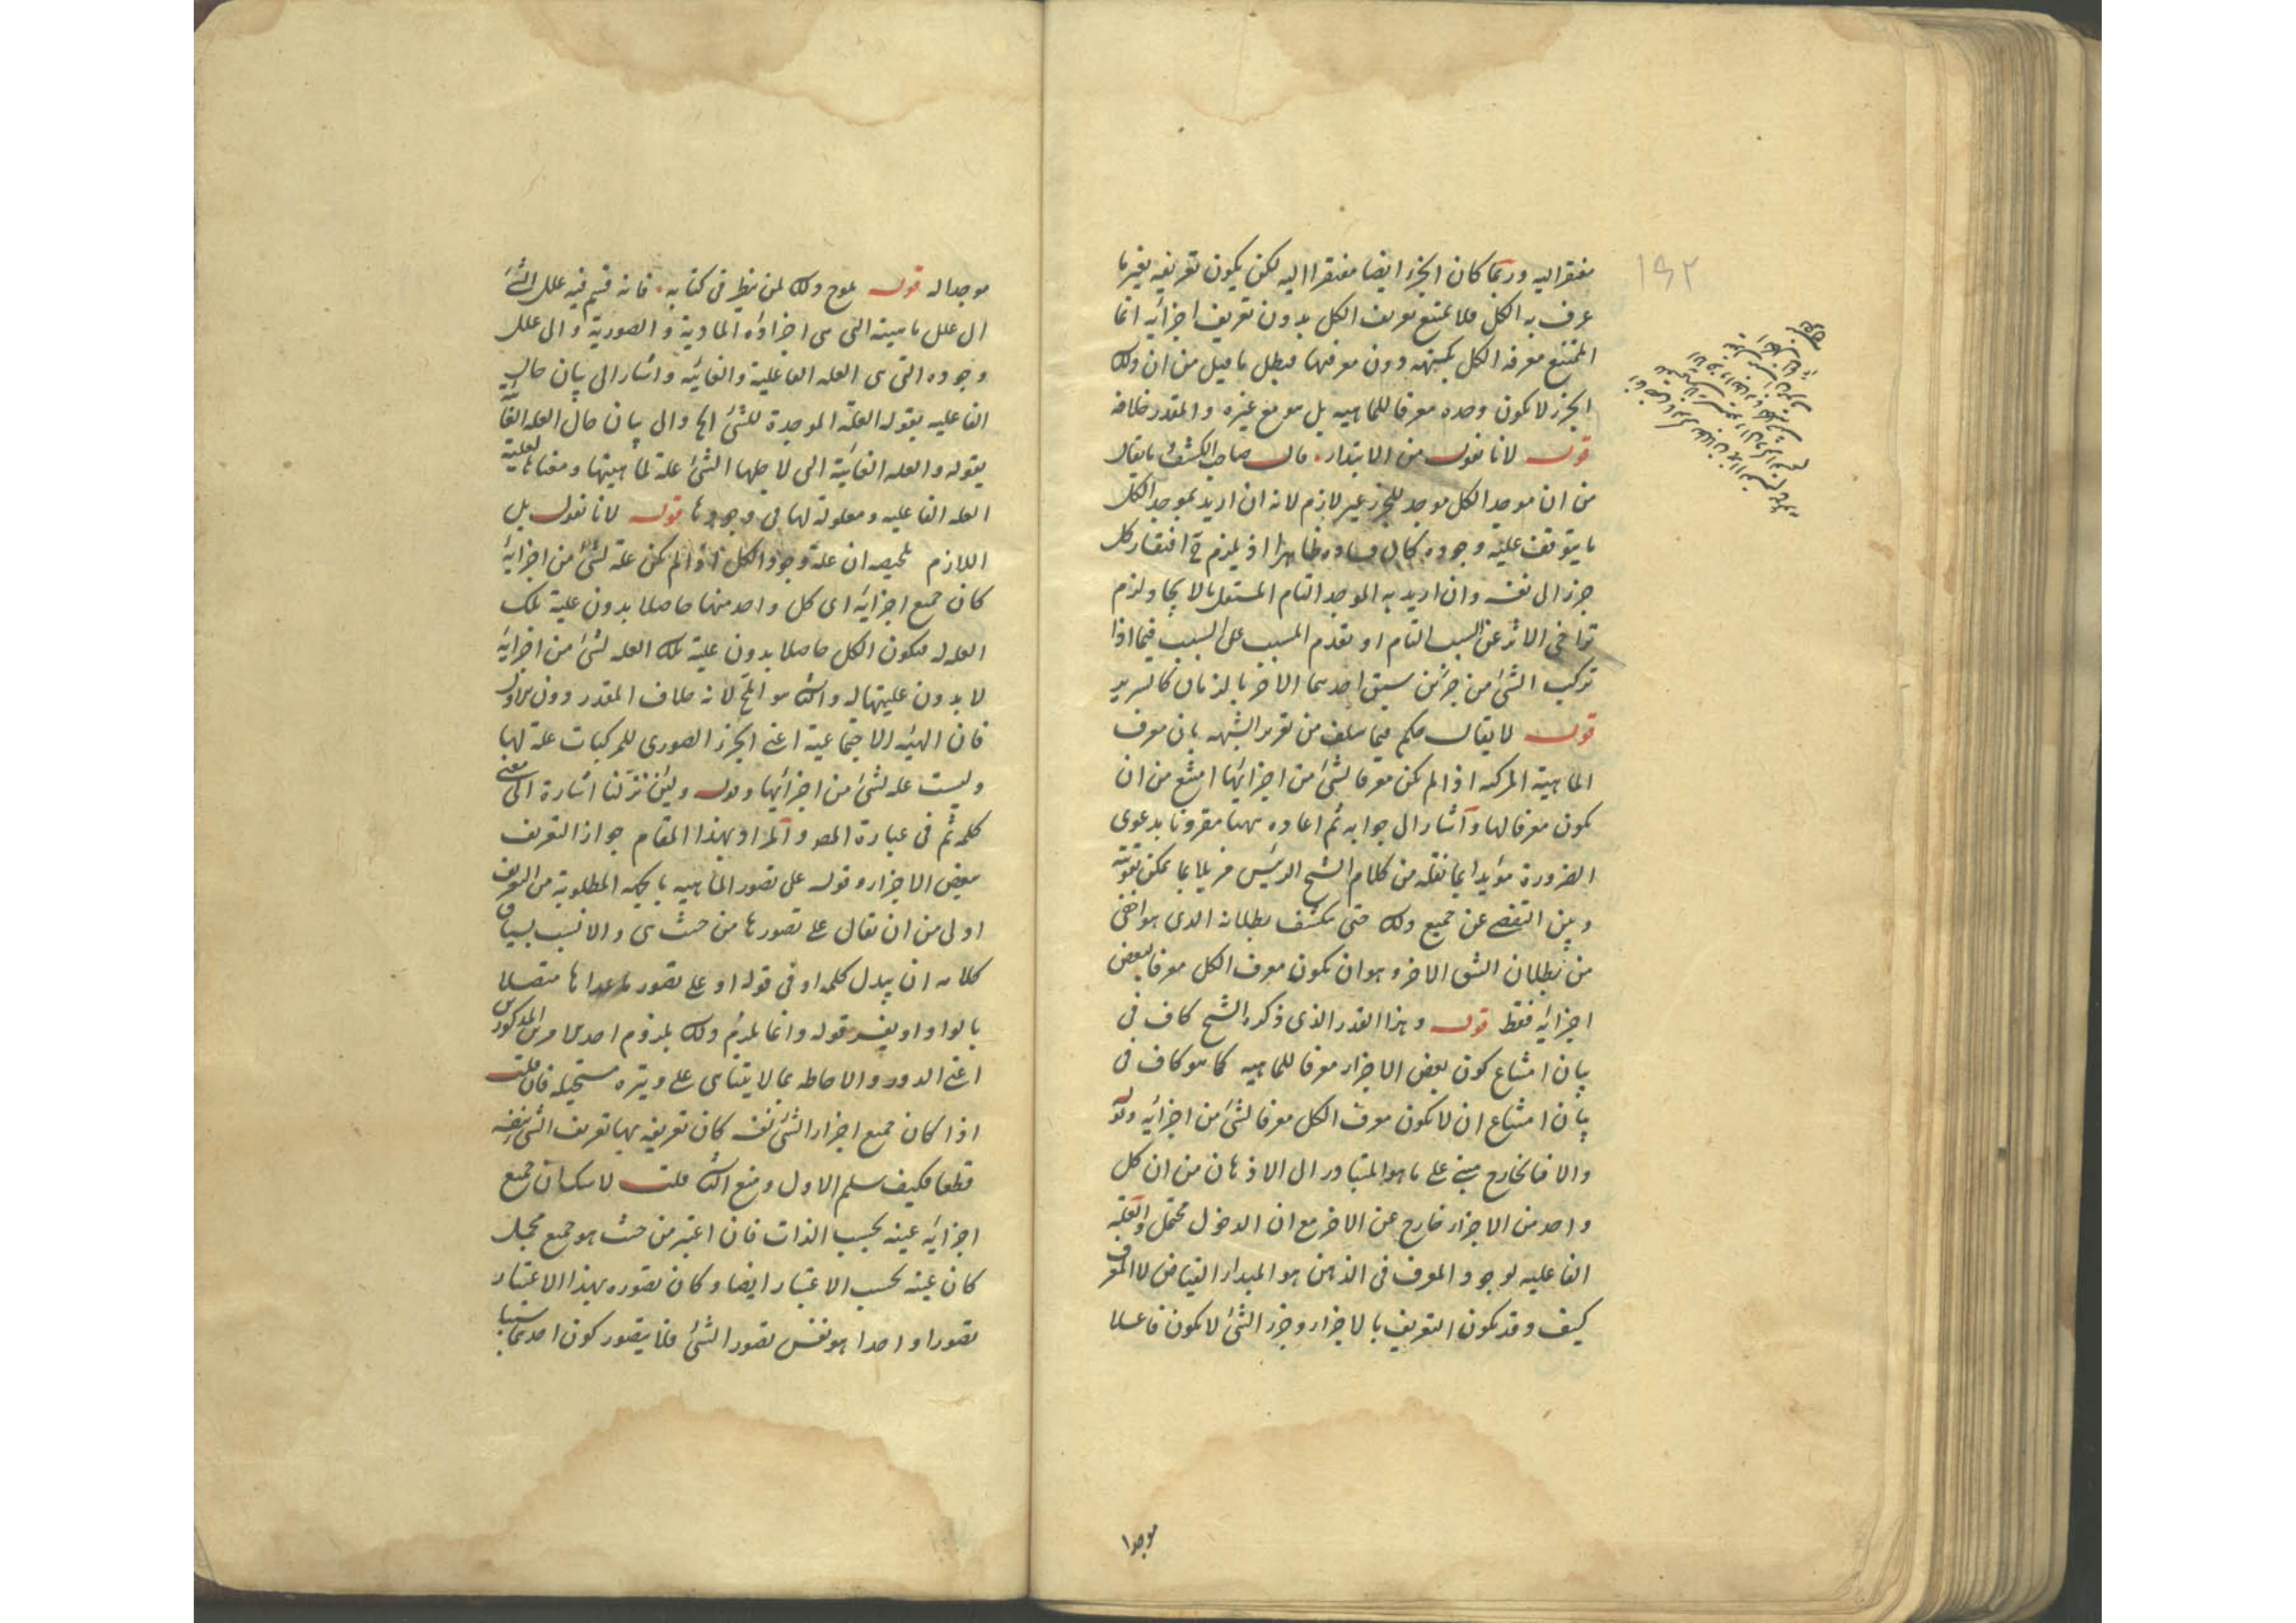 مفتقرا اليه وربما كان الجزء ايضا مفتقرا اليه لكن يكون تعريفه بغير ما
عرف به الكل فلا يمتنع تعريف الكل بدون تعريف اجزائه انما
الممتنع معرفة الكل بكنهه دون معرفتها فبطل ما قيل من ان ذلك
الجزء لا يكون وحده معرفا للماهيه بل هو مع غيره والمقدر خلافه
قوله لانا نقول من الابتداء قال صاحب الكشف ما يقال
من ان موجد الكل موجد للجزء غير لازم لانه ان اريد بموجد الكل
ما يتوقف عليه وجوده كان فساده ظاهرا اذ يلزم ح افتقار كل
جزء الى نفسه وان اريد به الموجد التام المستقل بالايجاد لزم
تراخى الاثر عن السبب التام او تقدم المسبب على السبب فيما اذا
تركب الشئ من جزئين سبق احدهما الاخر بالزمان كالسرير
قوله لا يقال حكم فيما سلف من تقرير الشبهه بان معرف
الماهية المركبه اذا لم يكن معرفا لشئ من اجزائها امتنع من ان
يكون معرفا لها واشار الى جوابه ثم اعاده ههنا مقرونا بدعوى
الضرورة مؤيدا بما نقله من كلام الشيخ الرئيس مزيلا بما يمكن تقويته
وبين التفصى عن جميع ذلك حتى ينكشف بطلانه الذى هو اخفى
من بطلان الشق الاخر وهو ان يكون معرف الكل معرفا لبعض
اجزائه فقط قوله وهذا القدر الذى ذكره الشيخ كاف فى
بيان امتناع كون بعض الاجزاء معرفا للماهيه كما هو كاف فى
بيان امتناع ان لا يكون معرف الكل معرفا لشئ من اجزائه وقوله
والا فالخارج مبنى على ما هو المتبادر الى الاذهان من ان كل
واحد من الاجزاء خارج عن الاخر مع ان الدخول محتمل والعلة
الفاعليه لوجود المعرف فى الذهن هو المبداء الفياض لا المعرف
كيف وقد يكون التعريف بالاجزاء وجزء الشئ لا يكون فاعلا
موجدا
١٩٢
موجدا له قوله يلوح ذلك لمن ينظر فى كتابه فانه قسم فيه علل الشئ
الى علل ماهيته التى هى اجزاؤه المادية والصورية والى علل
وجوده التى هى العله الفاعلية والغائيه واشار الى بيان حال
الفاعليه بقوله العلة الموجدة للشئ الخ والى بيان حال العله الغائية
بقوله والعله الغائية التى لاجلها الشئ علة لماهيتها ومعناها لعلية
العله الفاعليه ومعلولة لها فى وجودها قوله لانا نقول بل
اللازم تلخيصه ان علة وجود الكل اذا لم يكن علة لشئ من اجزائه
كان جميع اجزائه اى كل واحد منها حاصلا بدون علية تلك
العله له فيكون الكل حاصلا بدون علية تلك العله لشئ من اجزائه
لا بدون عليتها له والثانى هو المح لانه خلاف المقدر دون الاول
فان الهيئه الاجتماعية اعنى الجزء الصورى للمركبات علة لها
وليست علة لشئ من اجزائها وقوله ولئن تنزلنا اشارة الى معنى
كلمه ثم فى عبارة المص والمراد بهذا المقام جواز التعريف
ببعض الاجزاء وقوله على تصور الماهيه بالجهه المطلوبة من التعريف
اولى من ان يقال على تصورها من حيث هى والانسب بسياق
كلامه ان يبدل كلمه او فى قوله او على تصور ما عداها متصلا
بالواو او يفسر قوله وانما يلزم ذلك بلزوم احد الامرين المذكورين
اعنى الدور والاحاطه بما لا يتناهى على وتيره مستحيله فان قلت
اذا كان جميع اجزاء الشئ نفسه كان تعريفه بها تعريف الشئ بنفسه
قطعا فكيف سلم الاول ومنع الثانى قلت لا شك ان جميع
اجزائه عينه بحسب الذات فان اعتبر من حيث هو جميع مجمل
كان عينه بحسب الاعتبار ايضا وكان تصوره بهذا الاعتبار
تصورا واحدا هو نفس تصور الشئ فلا يتصور كون احدهما سببا